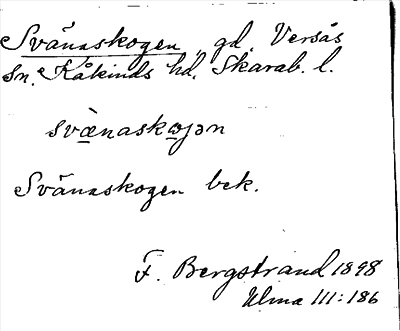 Svänaskogen, gd. Versås
sn. Kåkinds hd. Skarab. l.
svænaskωjən
Svänaskogen bek.
F. Bergstrand 1898
Ulma III:186